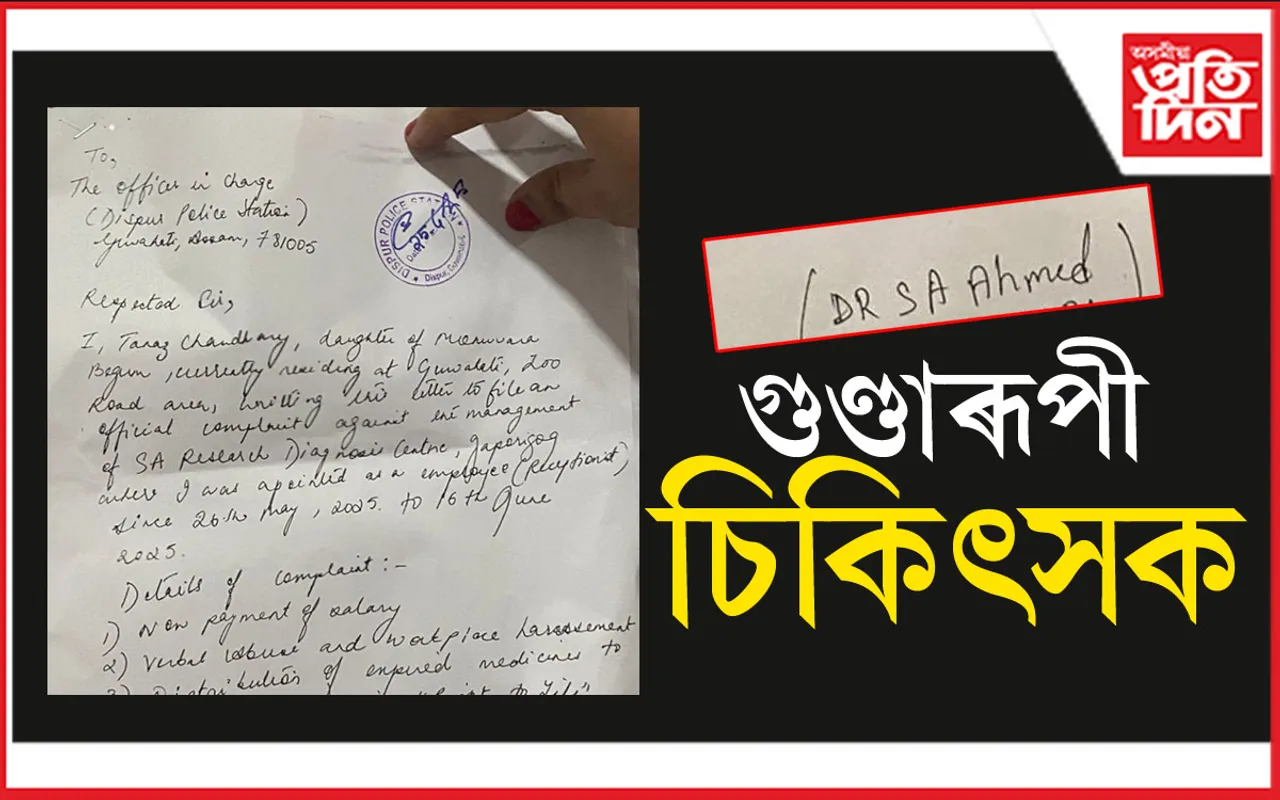 অসমীয়া
প্ৰতি
দিন
To,
The officer in Charge
(Dispur Police Station)
Guwahati, Assam, 781005
DISPUR POLICE STATION
Dispur, Guwahati-6
Respected Sir,
I, Taraz Chaudhary, daughter of
Begum, currently residing at Guwahati, Zoo
Road area, writting this letter to file an
official complaint against the management
of SA Research Diagnosis Centre,
where I was apointed as a employee (Receptionist)
since 26th May, 2025. to 16th June
2025.
Details of complaint:-
1) Non payment of salary
2) Verbal abuse and workplace harassement
of expired medicines to
(DR SA Ahmed)
গুণ্ডাৰূপী
চিকিৎসক